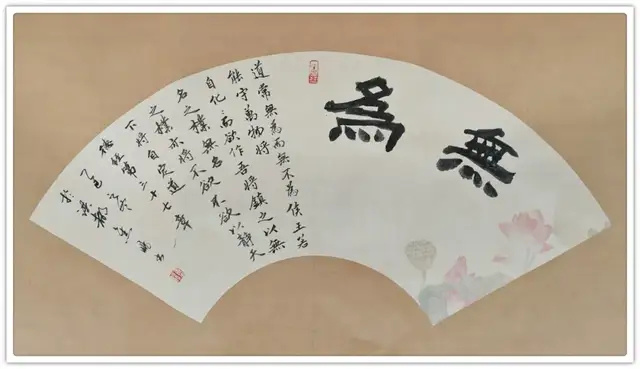 無為
道常無為而無不為侯王若
能守萬物將
自化而欲作吾將鎮之以無
名之樸無名
之樸亦將不欲不欲以靜天
下將自定道
德經第三十七章
乙巳
於